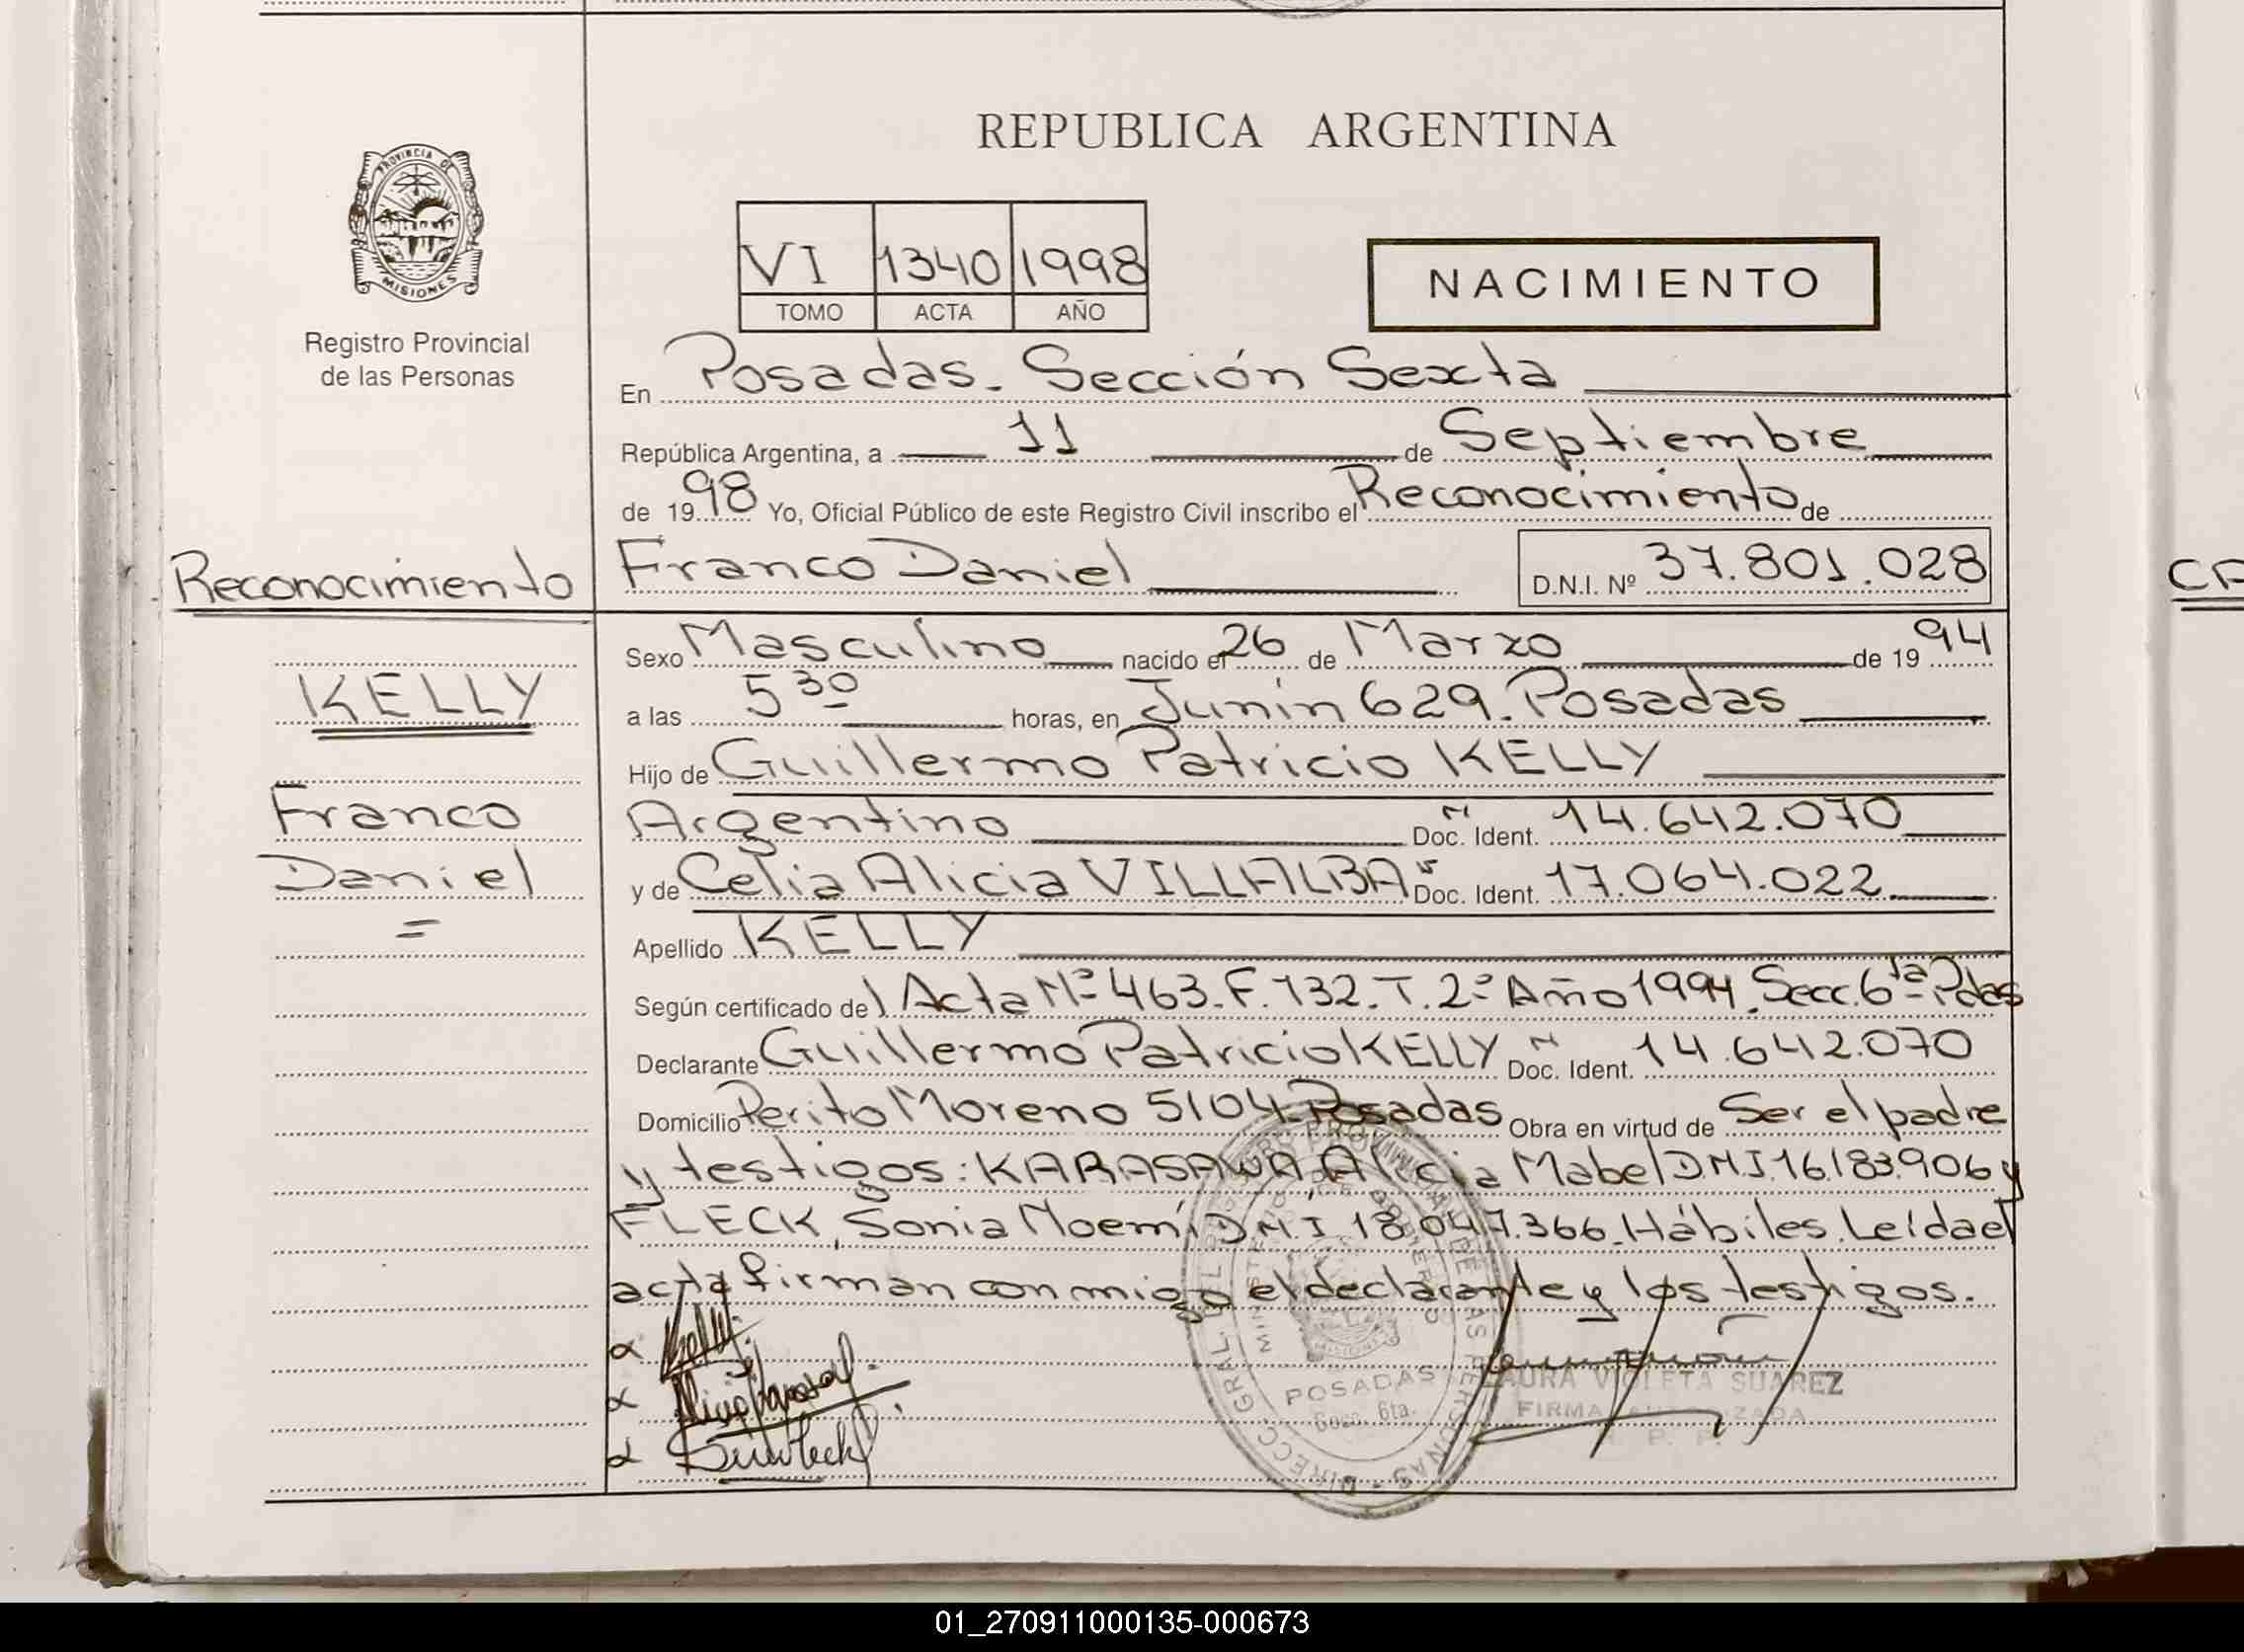 REPUBLICA ARGENTINA
PROVINCIA DE
MISIONES
Registro Provincial
de las Personas
VI 1340 1998
TOMO ACTA AÑO
NACIMIENTO
En Posadas. Sección Sexta
República Argentina, a 11 de Septiembre
de 1998 Yo, Oficial Público de este Registro Civil inscribo el Reconocimiento de
Reconocimiento
Franco Daniel D.N.I. Nº 37.801.028
CA
Sexo Masculino nacido el 26 de Marzo de 1994
KELLY
a las 5 30 horas, en Junín 629. Posadas
Hijo de Guillermo Patricio KELLY
Franco
Argentino Doc. Ident. 14.642.070
Daniel
y de Celia Alicia VILLALBA Doc. Ident. 17.064.022
Apellido KELLY
Según certificado del Acta Nº 463. F. 132. T. 2º Año 1994. Secc. 6ta Pdas
Declarante Guillermo Patricio KELLY Doc. Ident. 14.642.070
Domicilio Perito Moreno 5104 Posadas Obra en virtud de Ser el padre
y testigos: KARASAWA, Alicia Mabel D.N.I. 16.183.906 y
FLECK, Sonia Noemí D N I 18.047.366. Hábiles. Leída el
acta firman conmigo el declarante y los testigos.
LAURA VIOLETA SUAREZ
FIRMA AUTORIZADA
R. P. P.
DIRECC. GRAL. DEL REGISTRO PROVINCIAL DE LAS PERSONAS
MINISTERIO DE GOBIERNO
MISIONES
POSADAS
Secc. 6ta.
01_270911000135-000673